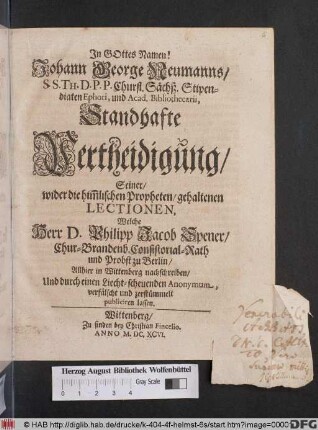 In GOttes Namen!
Johann George Neumanns/
S S. TH. D. P. P. Churfl. Sächß. Stipen-
diaten Ephori, und Acad. Bibliothecarii,
Standhafte
Vertheidigung/
Seiner/
wider die him̃lischen Propheten/ gehaltenen
LECTIONEN,
Welche
Herr D. Philipp Jacob Spener/
Chur-Brandenb. Consistorial-Rath
und Probst zu Berlin/
Allhier in Wittenberg nachschreiben/
Und durch einen Liecht-scheuenden Anonymum,
verfälscht und zerstümmelt
publiciren lassen.
Wittenberg/
Zu finden bey Christian Fincelio.
ANNO M. DC. XCVI.
Herzog August Bibliothek Wolfenbüttel
Gray Scale
© HAB http://diglib.hab.de/drucke/k-404-4f-helmst-6s/start.htm?image=00001
DFG